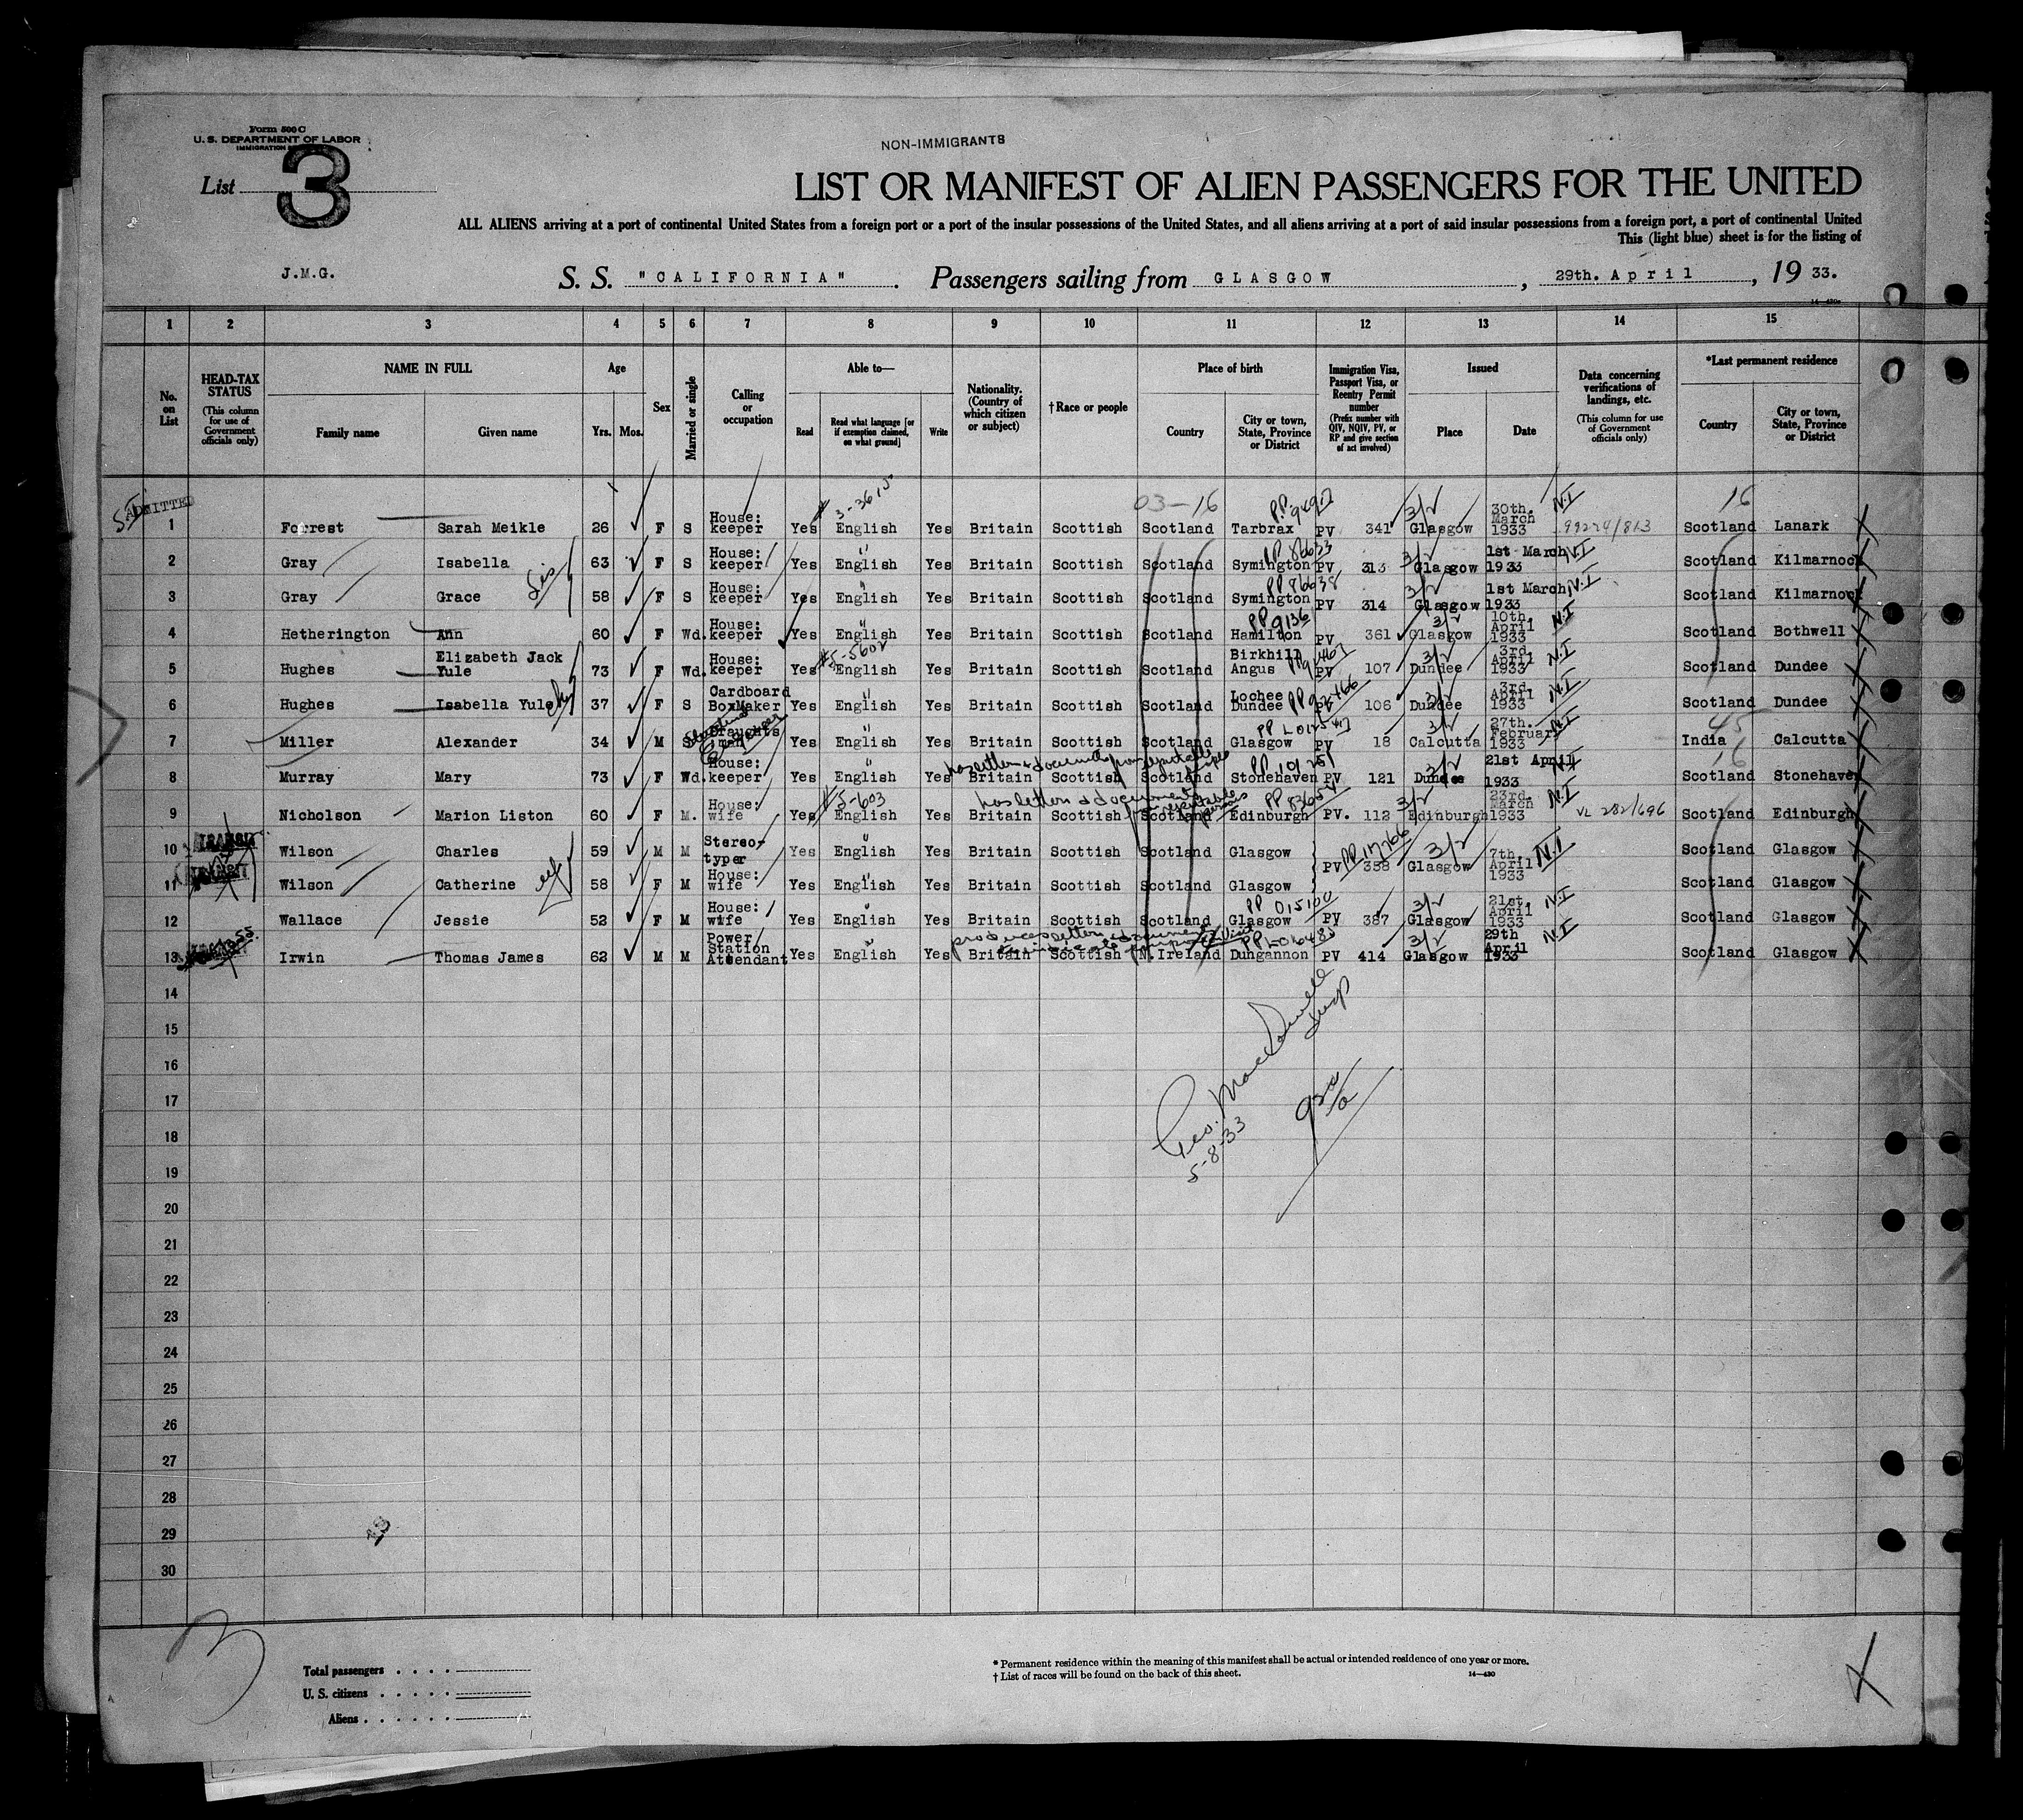 Form 500 C
U. S. DEPARTMENT OF LABOR
IMMIGRATION
NON-IMMIGRANTS
List 3
LIST OR MANIFEST OF ALIEN PASSENGERS FOR THE UNITED
ALL ALIENS arriving at a port of continental United States from a foreign port or a port of the insular possessions of the United States, and all aliens arriving at a port of said insular possessions from a foreign port, a port of continental United
This (light blue) sheet is for the listing of
J.M.G. S. S. "CALIFORNIA". Passengers sailing from GLASGOW, 29th. April, 19 33.
1 2 3 4 5 6 7 8 9 10 11 12 13 14 15
No. on List
HEAD-TAX STATUS (This column for use of Government officials only)
NAME IN FULL
Family name Given name
Age
Yrs. Mos.
Sex
Married or single
Calling or occupation
Able to—
Read Read what language [or if exemption claimed, on what ground] Write
Nationality. (Country of which citizen or subject)
†Race or people
Place of birth
Country City or town, State, Province or District
Immigration Visa, Passport Visa, or Reentry Permit number (Prefix number with QIV, NQIV, PV, or RP and give section of act involved)
Issued
Place Date
Data concerning verifications of landings, etc. (This column for use of Government officials only)
*Last permanent residence
Country City or town, State, Province or District
ADMITTED 3-3615 03-16 16
1 Forrest Sarah Meikle 26 F S House: keeper Yes English Yes Britain Scottish Scotland Tarbrax PV 341 3/2 Glasgow 30th. March 1933 N.I 99274/813 Scotland Lanark
2 Gray Isabella 63 F S House: keeper Yes English Yes Britain Scottish Scotland Symington PV 313 3/2 Glasgow 1st March 1933 N.I Scotland Kilmarnock
3 Gray Grace sis 58 F S House: keeper Yes English Yes Britain Scottish Scotland Symington PP 86638 PV 314 3/2 Glasgow 1st March 1933 N.I Scotland Kilmarnock
4 Hetherington Ann 60 F Wd. House: keeper Yes English Yes Britain Scottish Scotland Hamilton PV 361 3/2 Glasgow 10th. April 1933 N.I Scotland Bothwell
5 Hughes Elizabeth Jack Yule 73 F Wd. House: keeper Yes 5-5602 English Yes Britain Scottish Scotland Birkhill Angus PV 107 3/2 Dundee 3rd. April 1933 N.I Scotland Dundee
6 Hughes Isabella Yule 37 F S Cardboard BoxMaker Yes English Yes Britain Scottish Scotland Lochee Dundee PP 92466 PV 106 3/2 Dundee 3rd. April 1933 N.I Scotland Dundee
7 Miller Alexander 34 M S Draughtsman Yes English Yes Britain Scottish Scotland Glasgow PV 18 3/2 Calcutta 27th. February 1933 N.I 45 India Calcutta
8 Murray Mary 73 F Wd. House: keeper Yes English Yes Britain Scottish Scotland Stonehaven PV 121 3/2 Dundee 21st April 1933 N.I 16 Scotland Stonehaven
9 Nicholson Marion Liston 60 F M. House: wife Yes 5-603 English Yes Britain Scottish Scotland Edinburgh PV. 112 3/2 Edinburgh 23rd. March 1933 N.I VL 282/696 Scotland Edinburgh
10 TRANSIT Wilson Charles 59 M M Stereo-typer Yes English Yes Britain Scottish Scotland Glasgow PP 17766 PV 358 3/2 Glasgow 7th. April 1933 N.I Scotland Glasgow
11 TRANSIT Wilson Catherine wf 58 F M House: wife Yes English Yes Britain Scottish Scotland Glasgow Scotland Glasgow
12 Wallace Jessie 52 F M House: wife Yes English Yes Britain Scottish Scotland Glasgow PP 015100 PV 387 3/2 Glasgow 21st. April 1933 N.I Scotland Glasgow
13 Irwin Thomas James 62 M M Power Station Attendant Yes English Yes Britain Scottish N.Ireland Dungannon PV 414 3/2 Glasgow 29th April 1933 N.I Scotland Glasgow
14
15
16
17
18
19
20
21
22
23
24
25
26
27
28
29
30
5-8-33
Total passengers
U. S. citizens
Aliens
* Permanent residence within the meaning of this manifest shall be actual or intended residence of one year or more.
† List of races will be found on the back of this sheet. 14—430